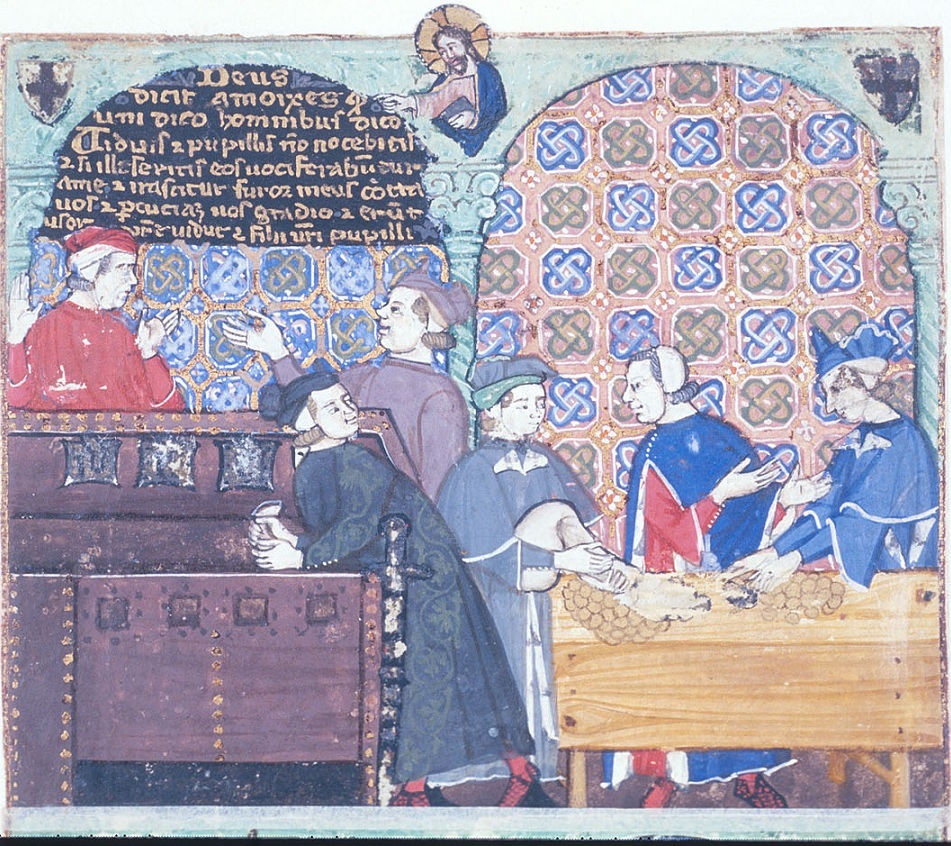 Deus
dicit amoixes q
uni dico hominibus dico
Uiduis ⁊ pupillis no nocebitis
⁊ si illeseritis eos uociferabuntur
ame ⁊ irascitur furor meus cotra
uos ⁊ percucia uos gladio ⁊ erut
uidue ⁊ filii uri pupilli